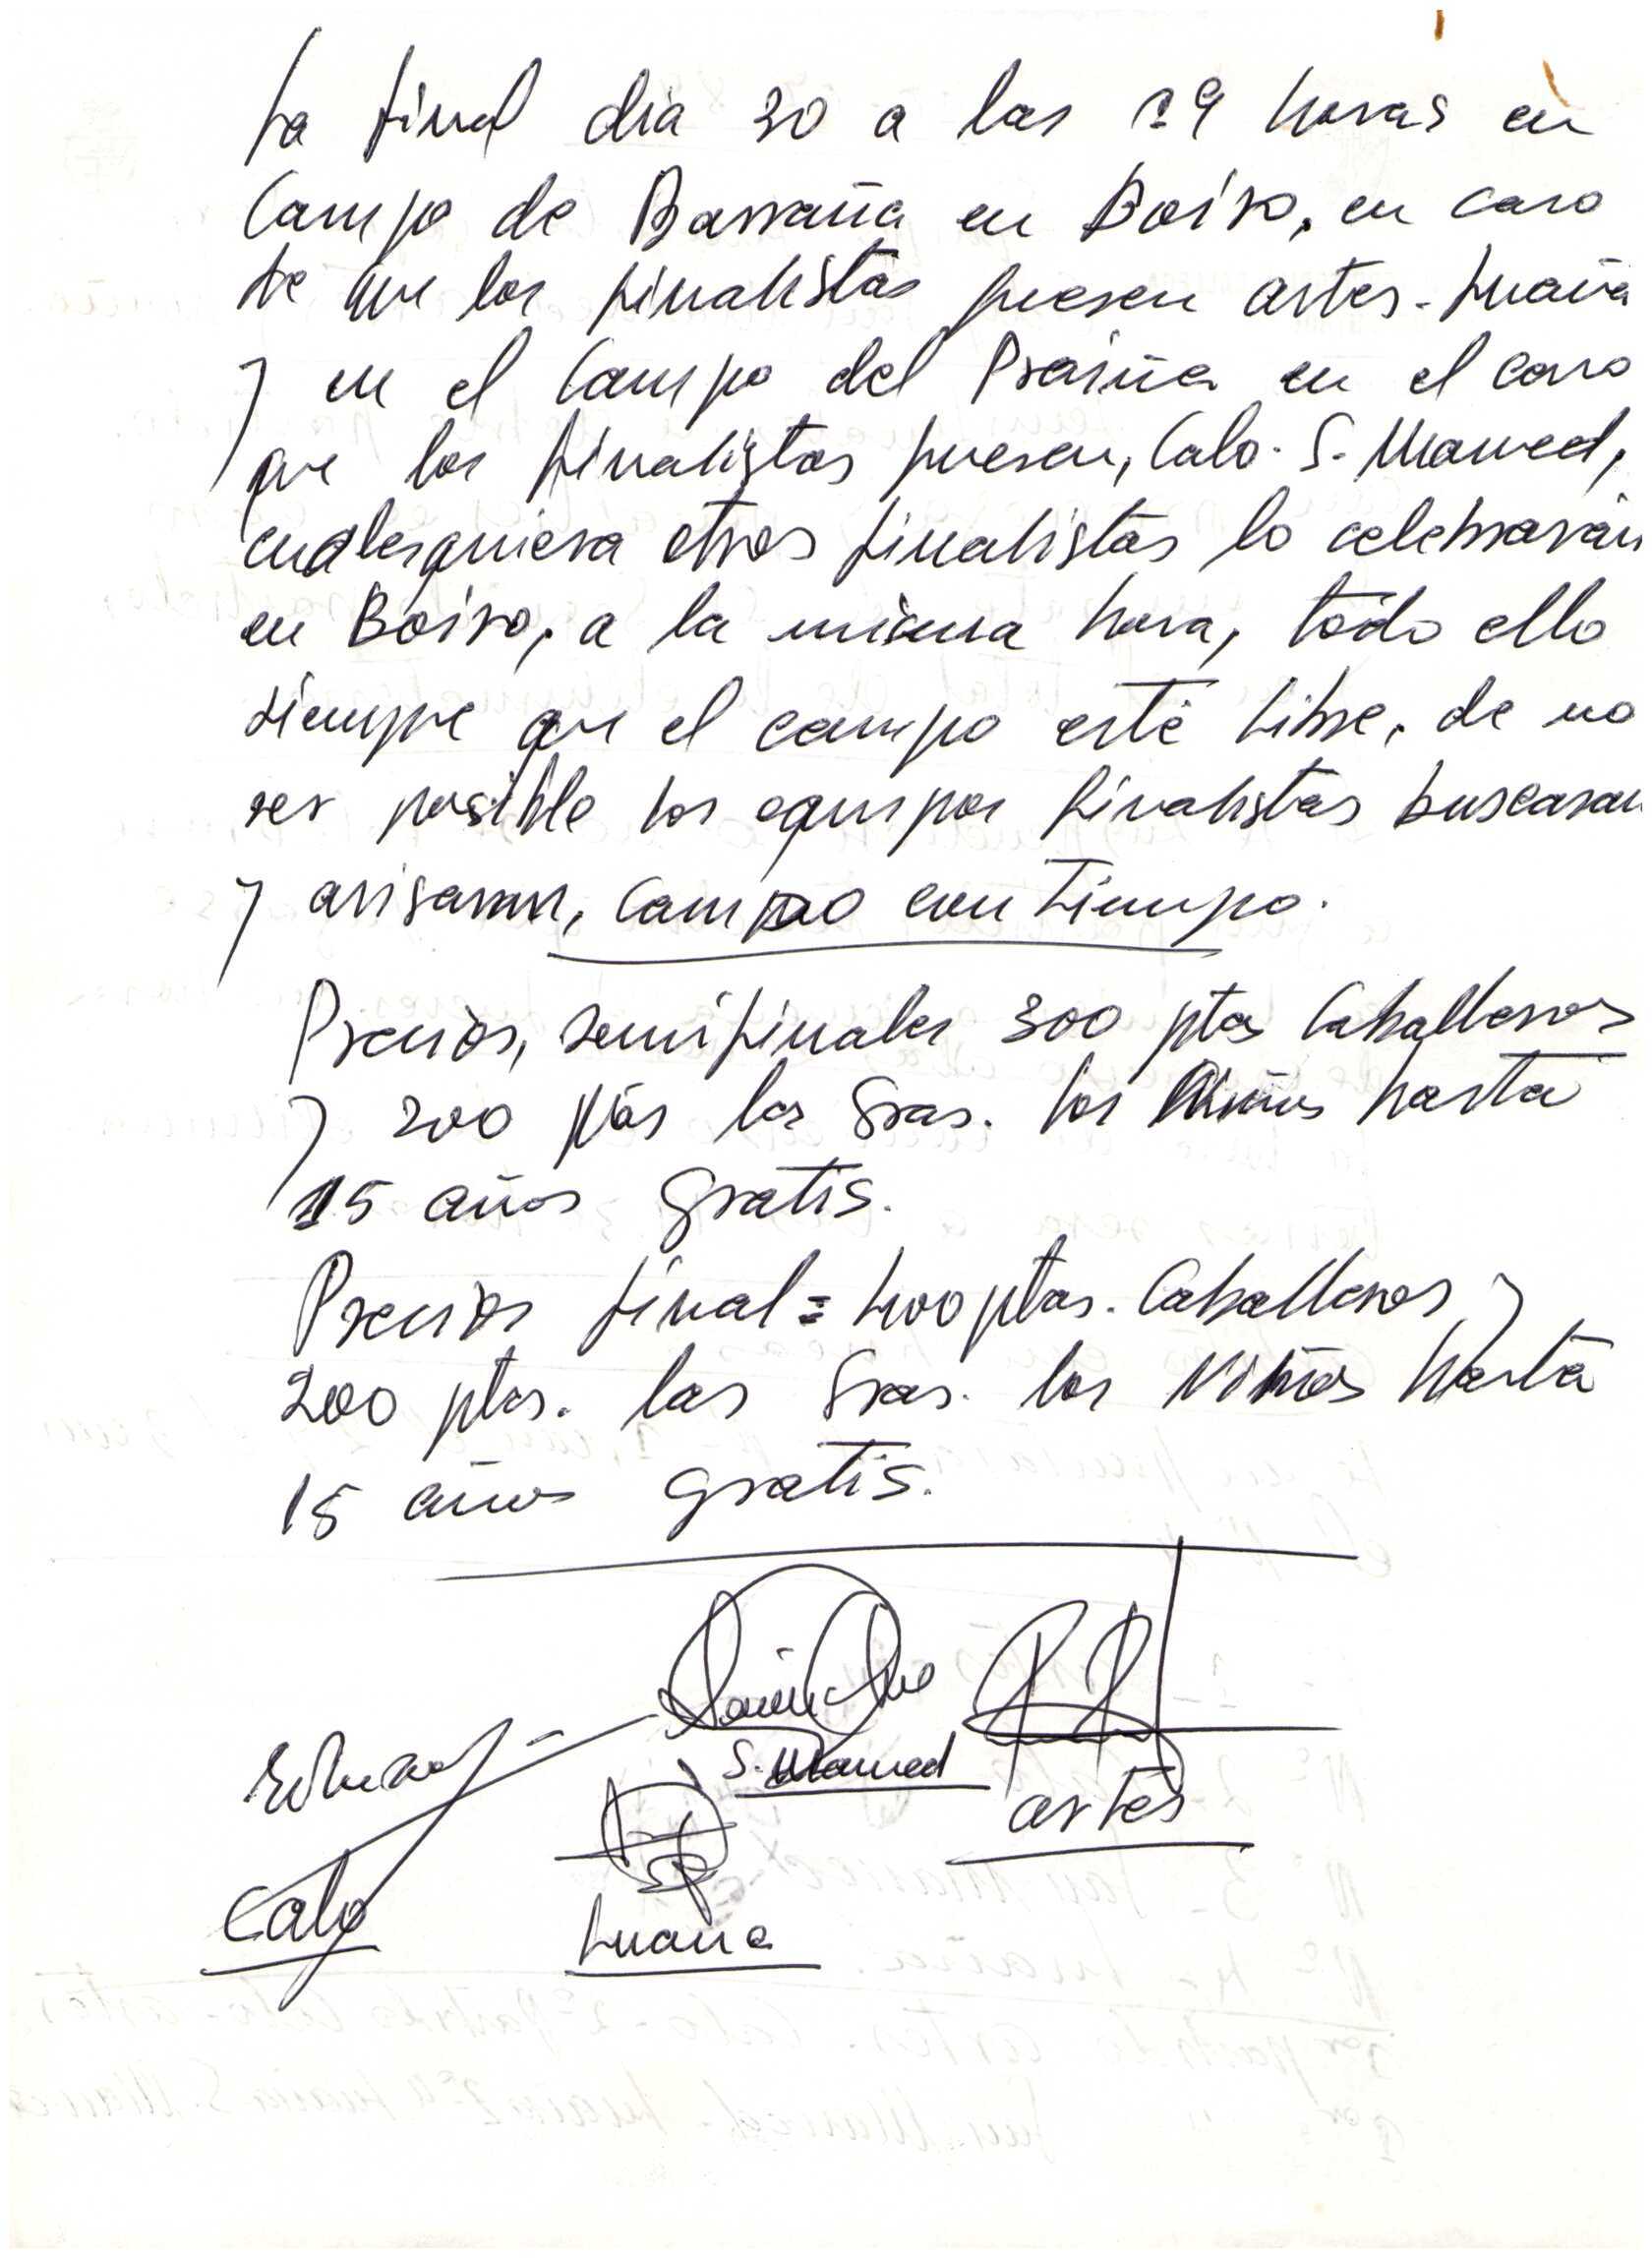 La final dia 30 a las 19 horas en
Campo de Barraña en Boiro, en caso
de que los finalistas fuesen artes-Luaña
y en el Campo del Praiña en el caso
que los finalistas fuesen, Calo-S. Mamed,
cualesquiera otros finalistas lo celebrarán
en Boiro, a la misma hora, todo ello
siempre que el campo esté libre, de no
ser posible los equipos finalistas buscaran
y avisaran, campo con tiempo.
Precios, semifinales 300 ptas Caballeros
y 200 ptas las Sras. los Niños hasta
15 años gratis.
Precios final = 400 ptas. Caballeros y
200 ptas. las Sras. los Niños hasta
15 años gratis.
S. Mamed
artes
Calo
Luaña